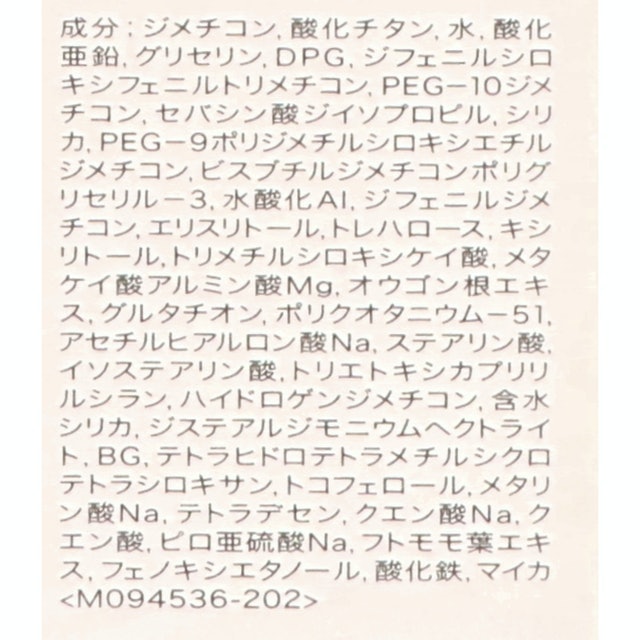 成分：ジメチコン，酸化チタン，水，酸化
亜鉛，グリセリン，DPG，ジフェニルシロ
キシフェニルトリメチコン，PEG－10ジメ
チコン，セバシン酸ジイソプロピル，シリ
カ，PEG－9ポリジメチルシロキシエチル
ジメチコン，ビスブチルジメチコンポリグ
リセリル－3，水酸化Al，ジフェニルジメ
チコン，エリスリトール，トレハロース，キシ
リトール，トリメチルシロキシケイ酸，メタ
ケイ酸アルミン酸Mg，オウゴン根エキ
ス，グルタチオン，ポリクオタニウム－51，
アセチルヒアルロン酸Na，ステアリン酸，
イソステアリン酸，トリエトキシカプリリ
ルシラン，ハイドロゲンジメチコン，含水
シリカ，ジステアルジモニウムヘクトライ
ト，BG，テトラヒドロテトラメチルシクロ
テトラシロキサン，トコフェロール，メタリ
ン酸Na，テトラデセン，クエン酸Na，ク
エン酸，ピロ亜硫酸Na，フトモモ葉エキ
ス，フェノキシエタノール，酸化鉄，マイカ
<M094536-202>